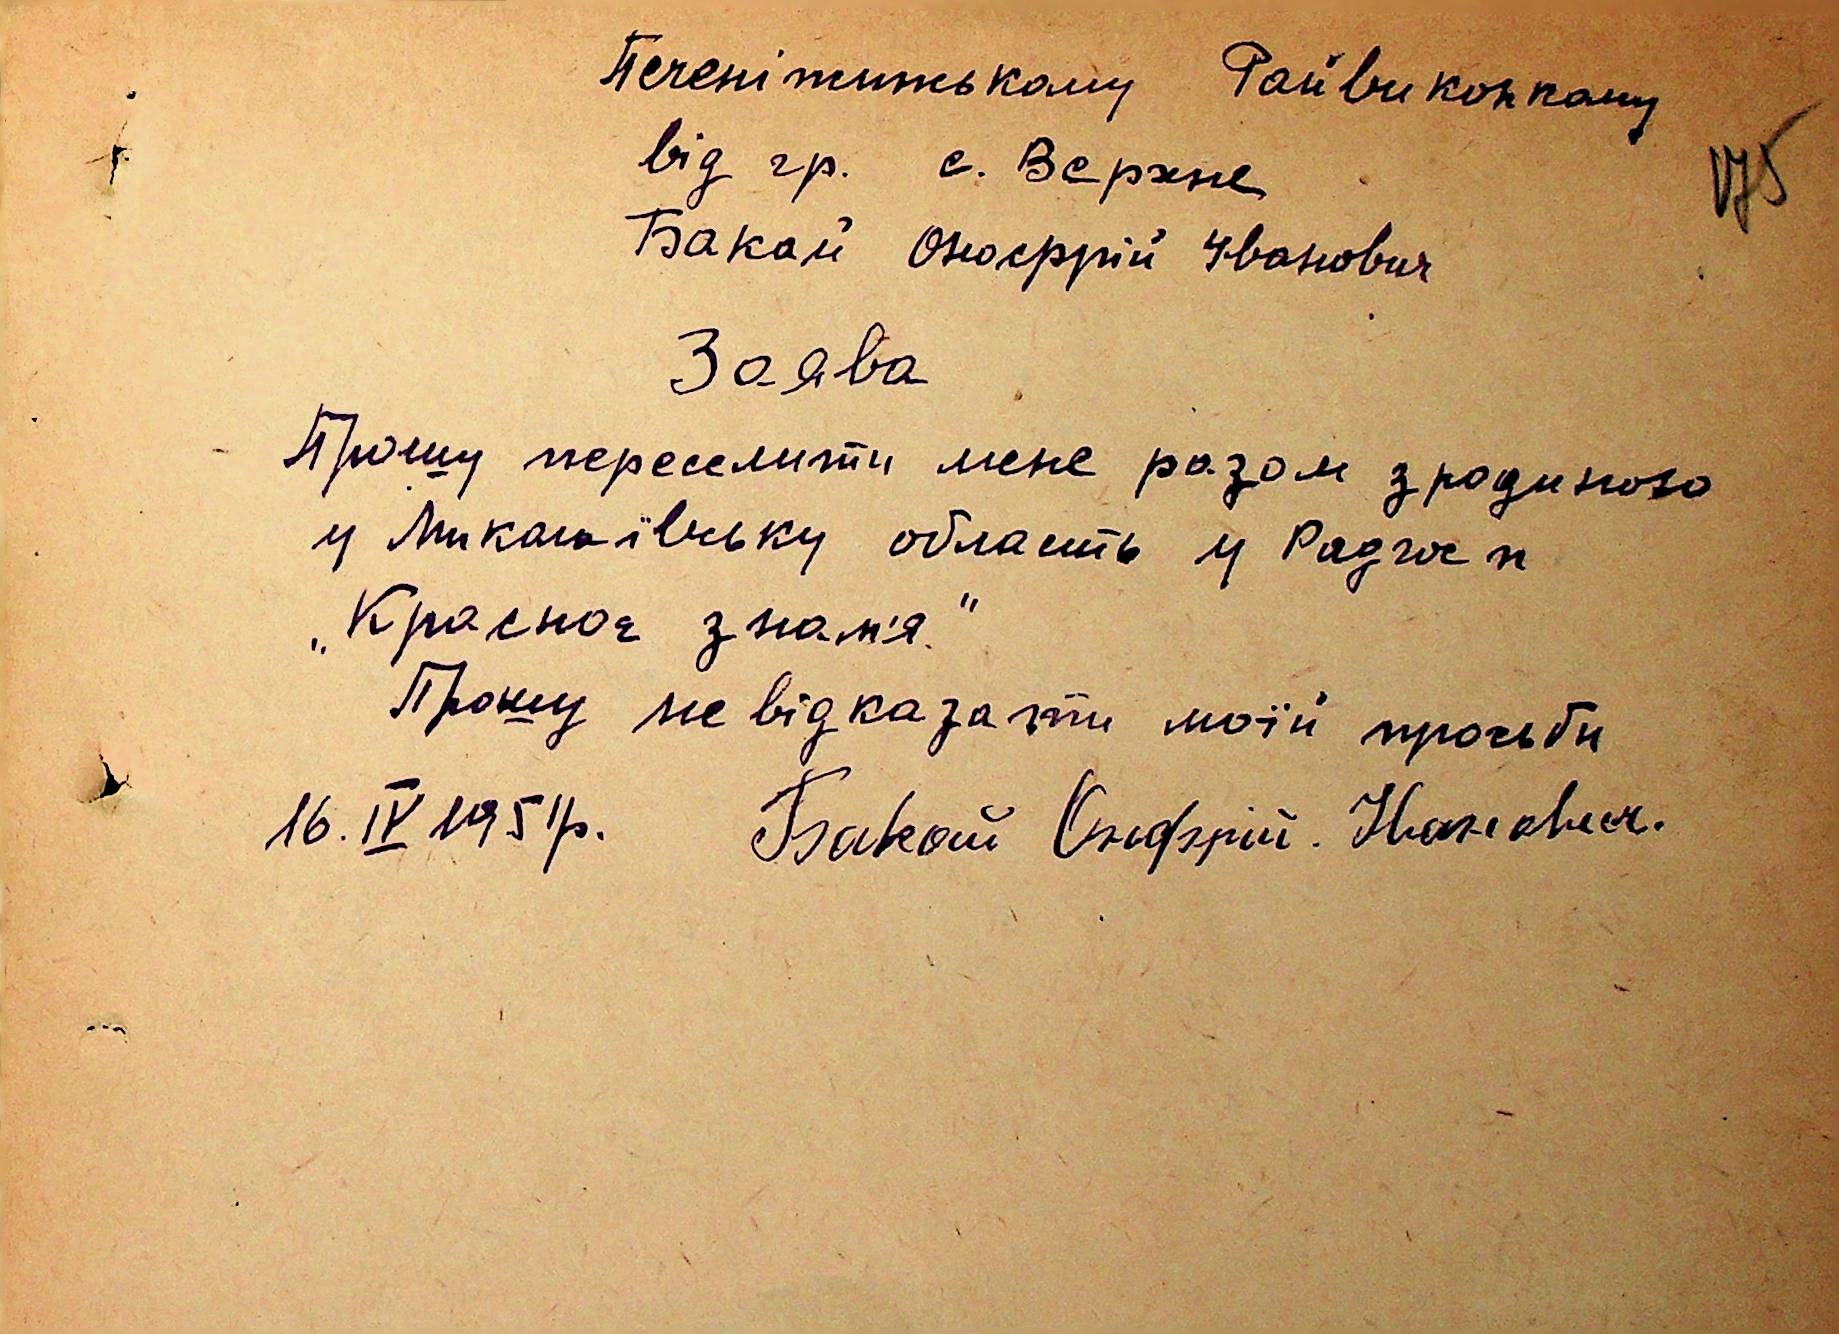 Печеніжинському Райвиконкому
175
від гр. с. Верхнє
Бакай Онофррій Іванович
Заява
Прошу переселити мене разом з родиною
у Миколаївську область у Радгосп
„Красноє знам'я."
Прошу не відказати моїй прозьби
16. IV 1951р. Бакай Онофрій. Іванович.